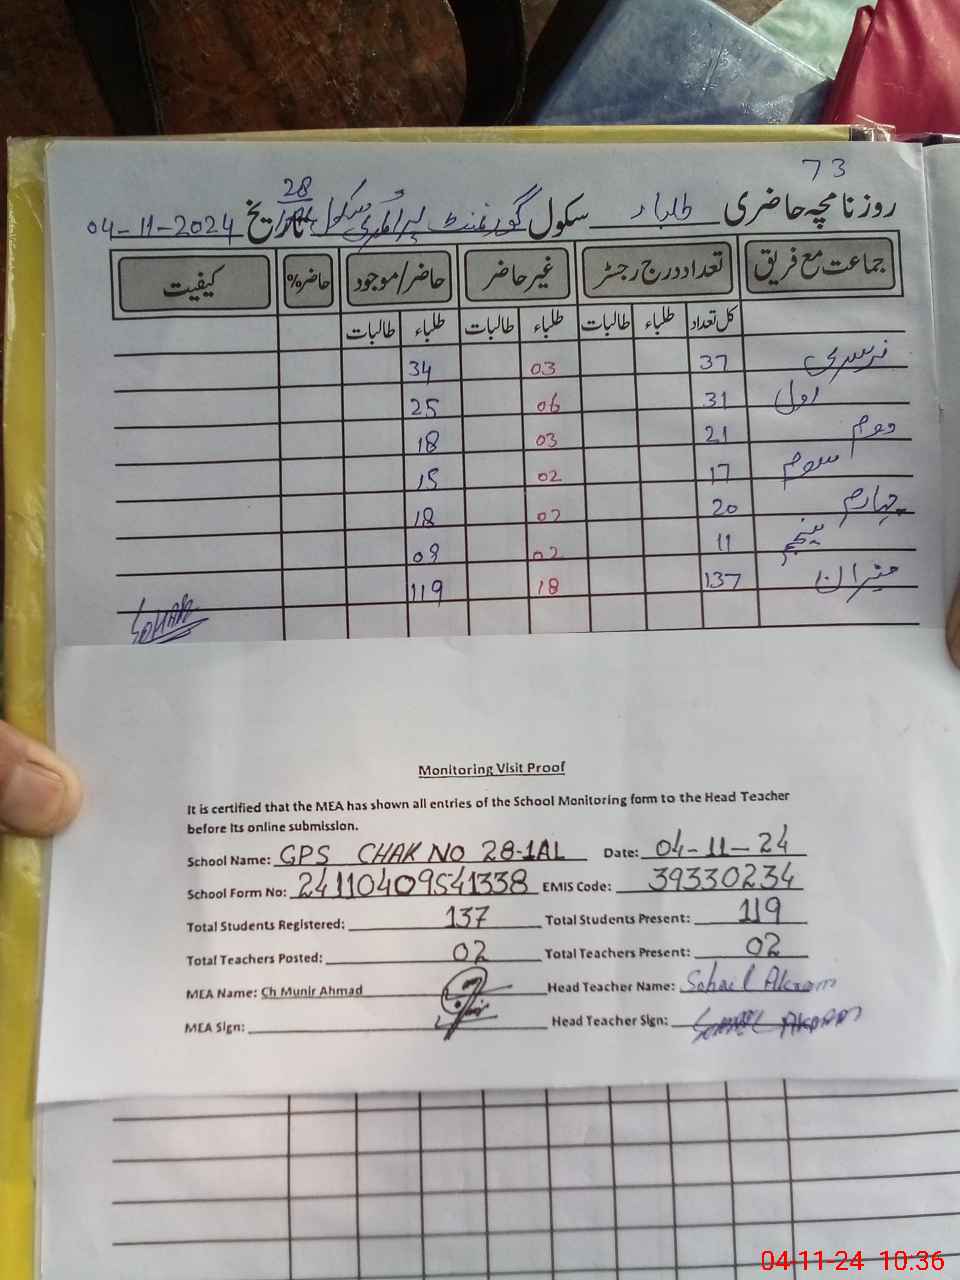 73
روزنامچہ حاضری طلباء سکول گورنمنٹ پرائمری سکول 28 تاریخ 04-11-2024
جماعت مع فریق تعداد درج رجسٹر غیر حاضر حاضر/موجود حاضر% کیفیت
کل تعداد طلباء طالبات طلباء طالبات طلباء طالبات
نرسری 37 03 34
اول 31 06 25
دوم 21 03 18
سوم 17 02 15
چہارم 20 02 18
پنجم 11 02 09
میزان 137 18 119
Monitoring Visit Proof
It is certified that the MEA has shown all entries of the School Monitoring form to the Head Teacher
before its online submission.
School Name: GPS CHAK NO 28-1AL Date: 04-11-24
School Form No: 24110409541338 EMIS Code: 39330234
Total Students Registered: 137 Total Students Present: 119
Total Teachers Posted: 02 Total Teachers Present: 02
MEA Name: Ch Munir Ahmad Head Teacher Name: Sohail Akram
MEA Sign: Head Teacher Sign: Sohail Akram
04-11-24 10:36